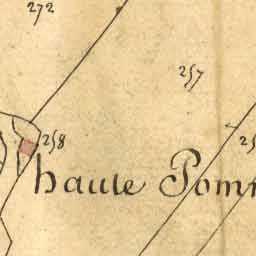 272
257
258
haute Pom